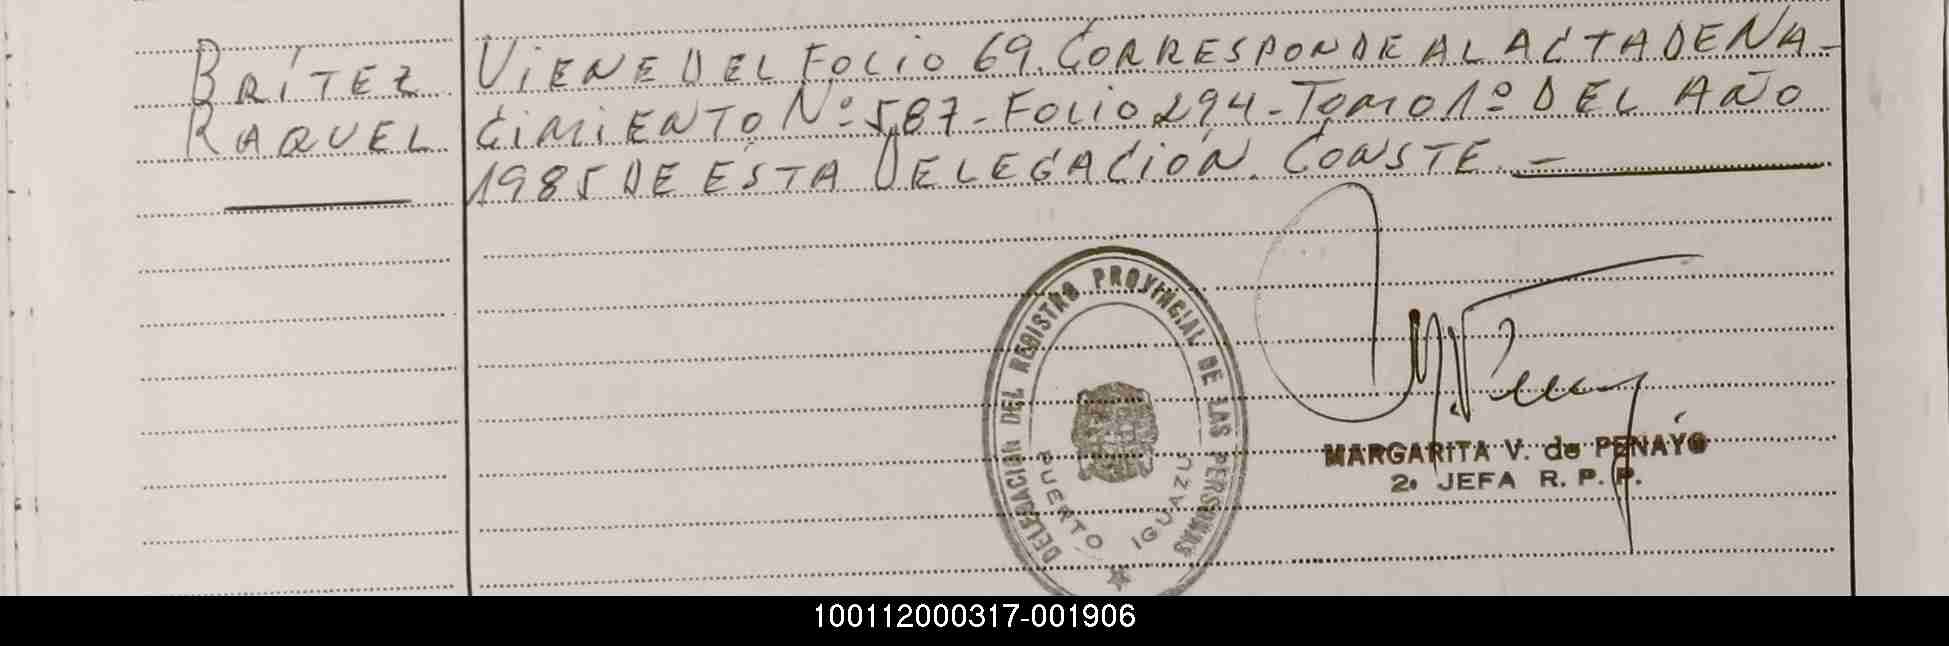 BRÍTEZ VIENE DEL FOLIO 69. CORRESPONDE AL ACTA DE NA-
RAQUEL CIMIENTO Nº 587 - FOLIO 294 - TOMO 1º DEL AÑO
1985 DE ÉSTA DELEGACIÓN. CONSTE. -
DELEGACION DEL REGISTRO PROVINCIAL DE LAS PERSONAS
PUERTO IGUAZU
MARGARITA V. de PENAYO
2º JEFA R. P. P.
100112000317-001906